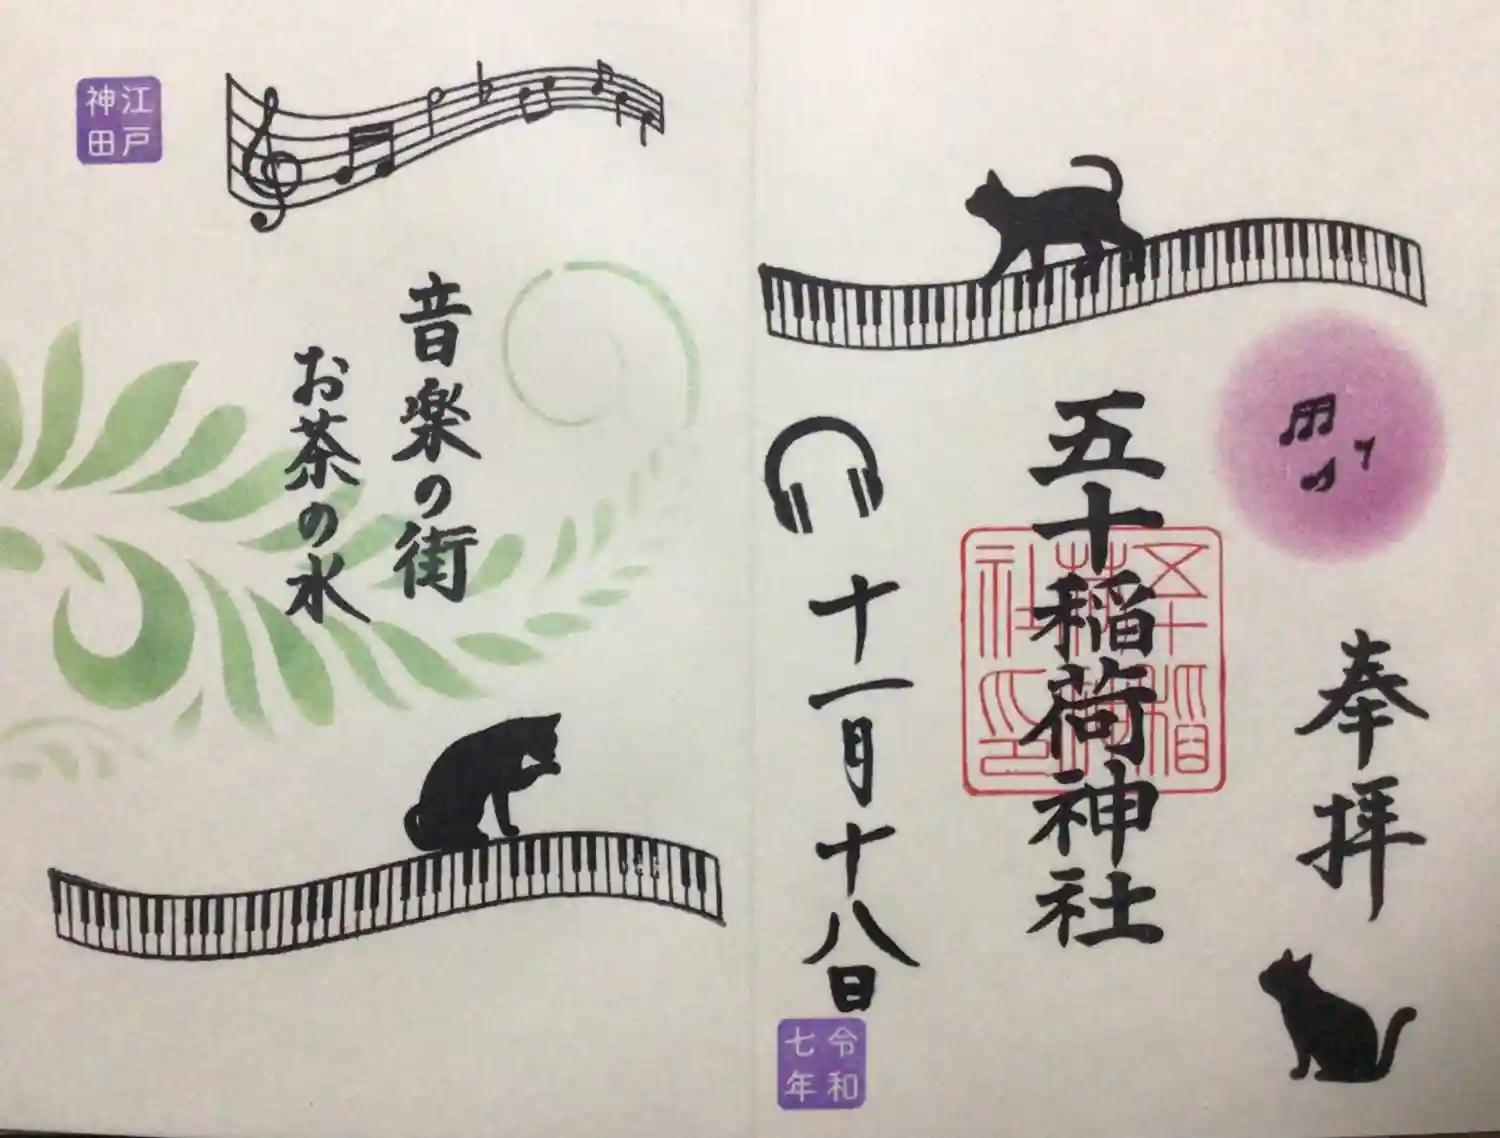 奉拝
五十稲荷神社
五十稲荷神社印
十一月十八日
令和
七年
音楽の街
お茶の水
江戸
神田